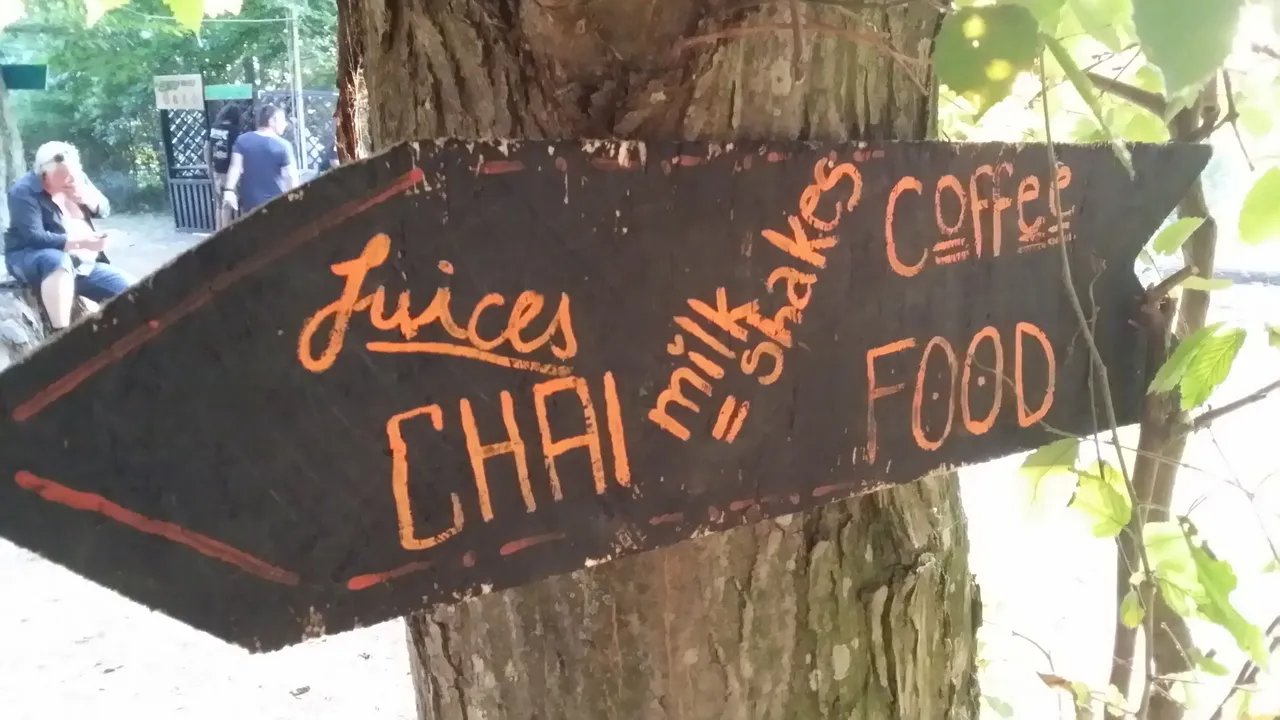 Juices
CHAI
milk
shakes
Coffee
FOOD